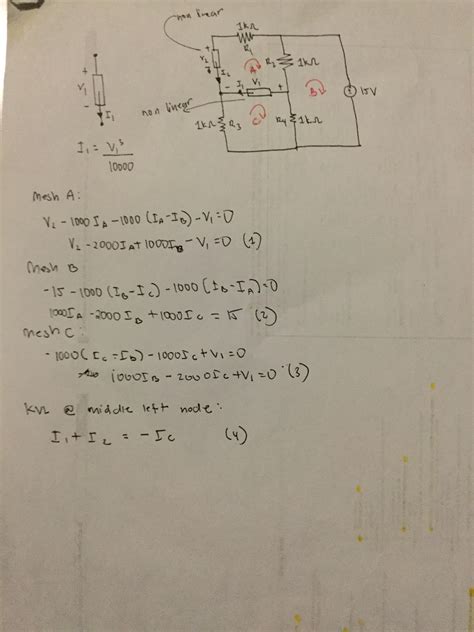 non linear
1kΩ
R1
+
V2
-
I2
A
R2
1kΩ
+
V1
-
I1
- I1 V1 +
B
15V
non linear
C
1kΩ
R3
R4
1kΩ
I1 = V1³
10000
Mesh A:
V2 - 1000IA - 1000 (IA - IB) - V1 = 0
V2 - 2000IA + 1000IB - V1 = 0 (1)
Mesh B
-15 - 1000 (IB - IC) - 1000 (IB - IA) = 0
1000IA - 2000 IB + 1000IC = 15 (2)
Mesh C:
-1000 (IC - Ib) - 1000IC + V1 = 0
1000IB - 2000IC + V1 = 0 (3)
KVL @ middle left node:
I1 + I2 = - IC (4)